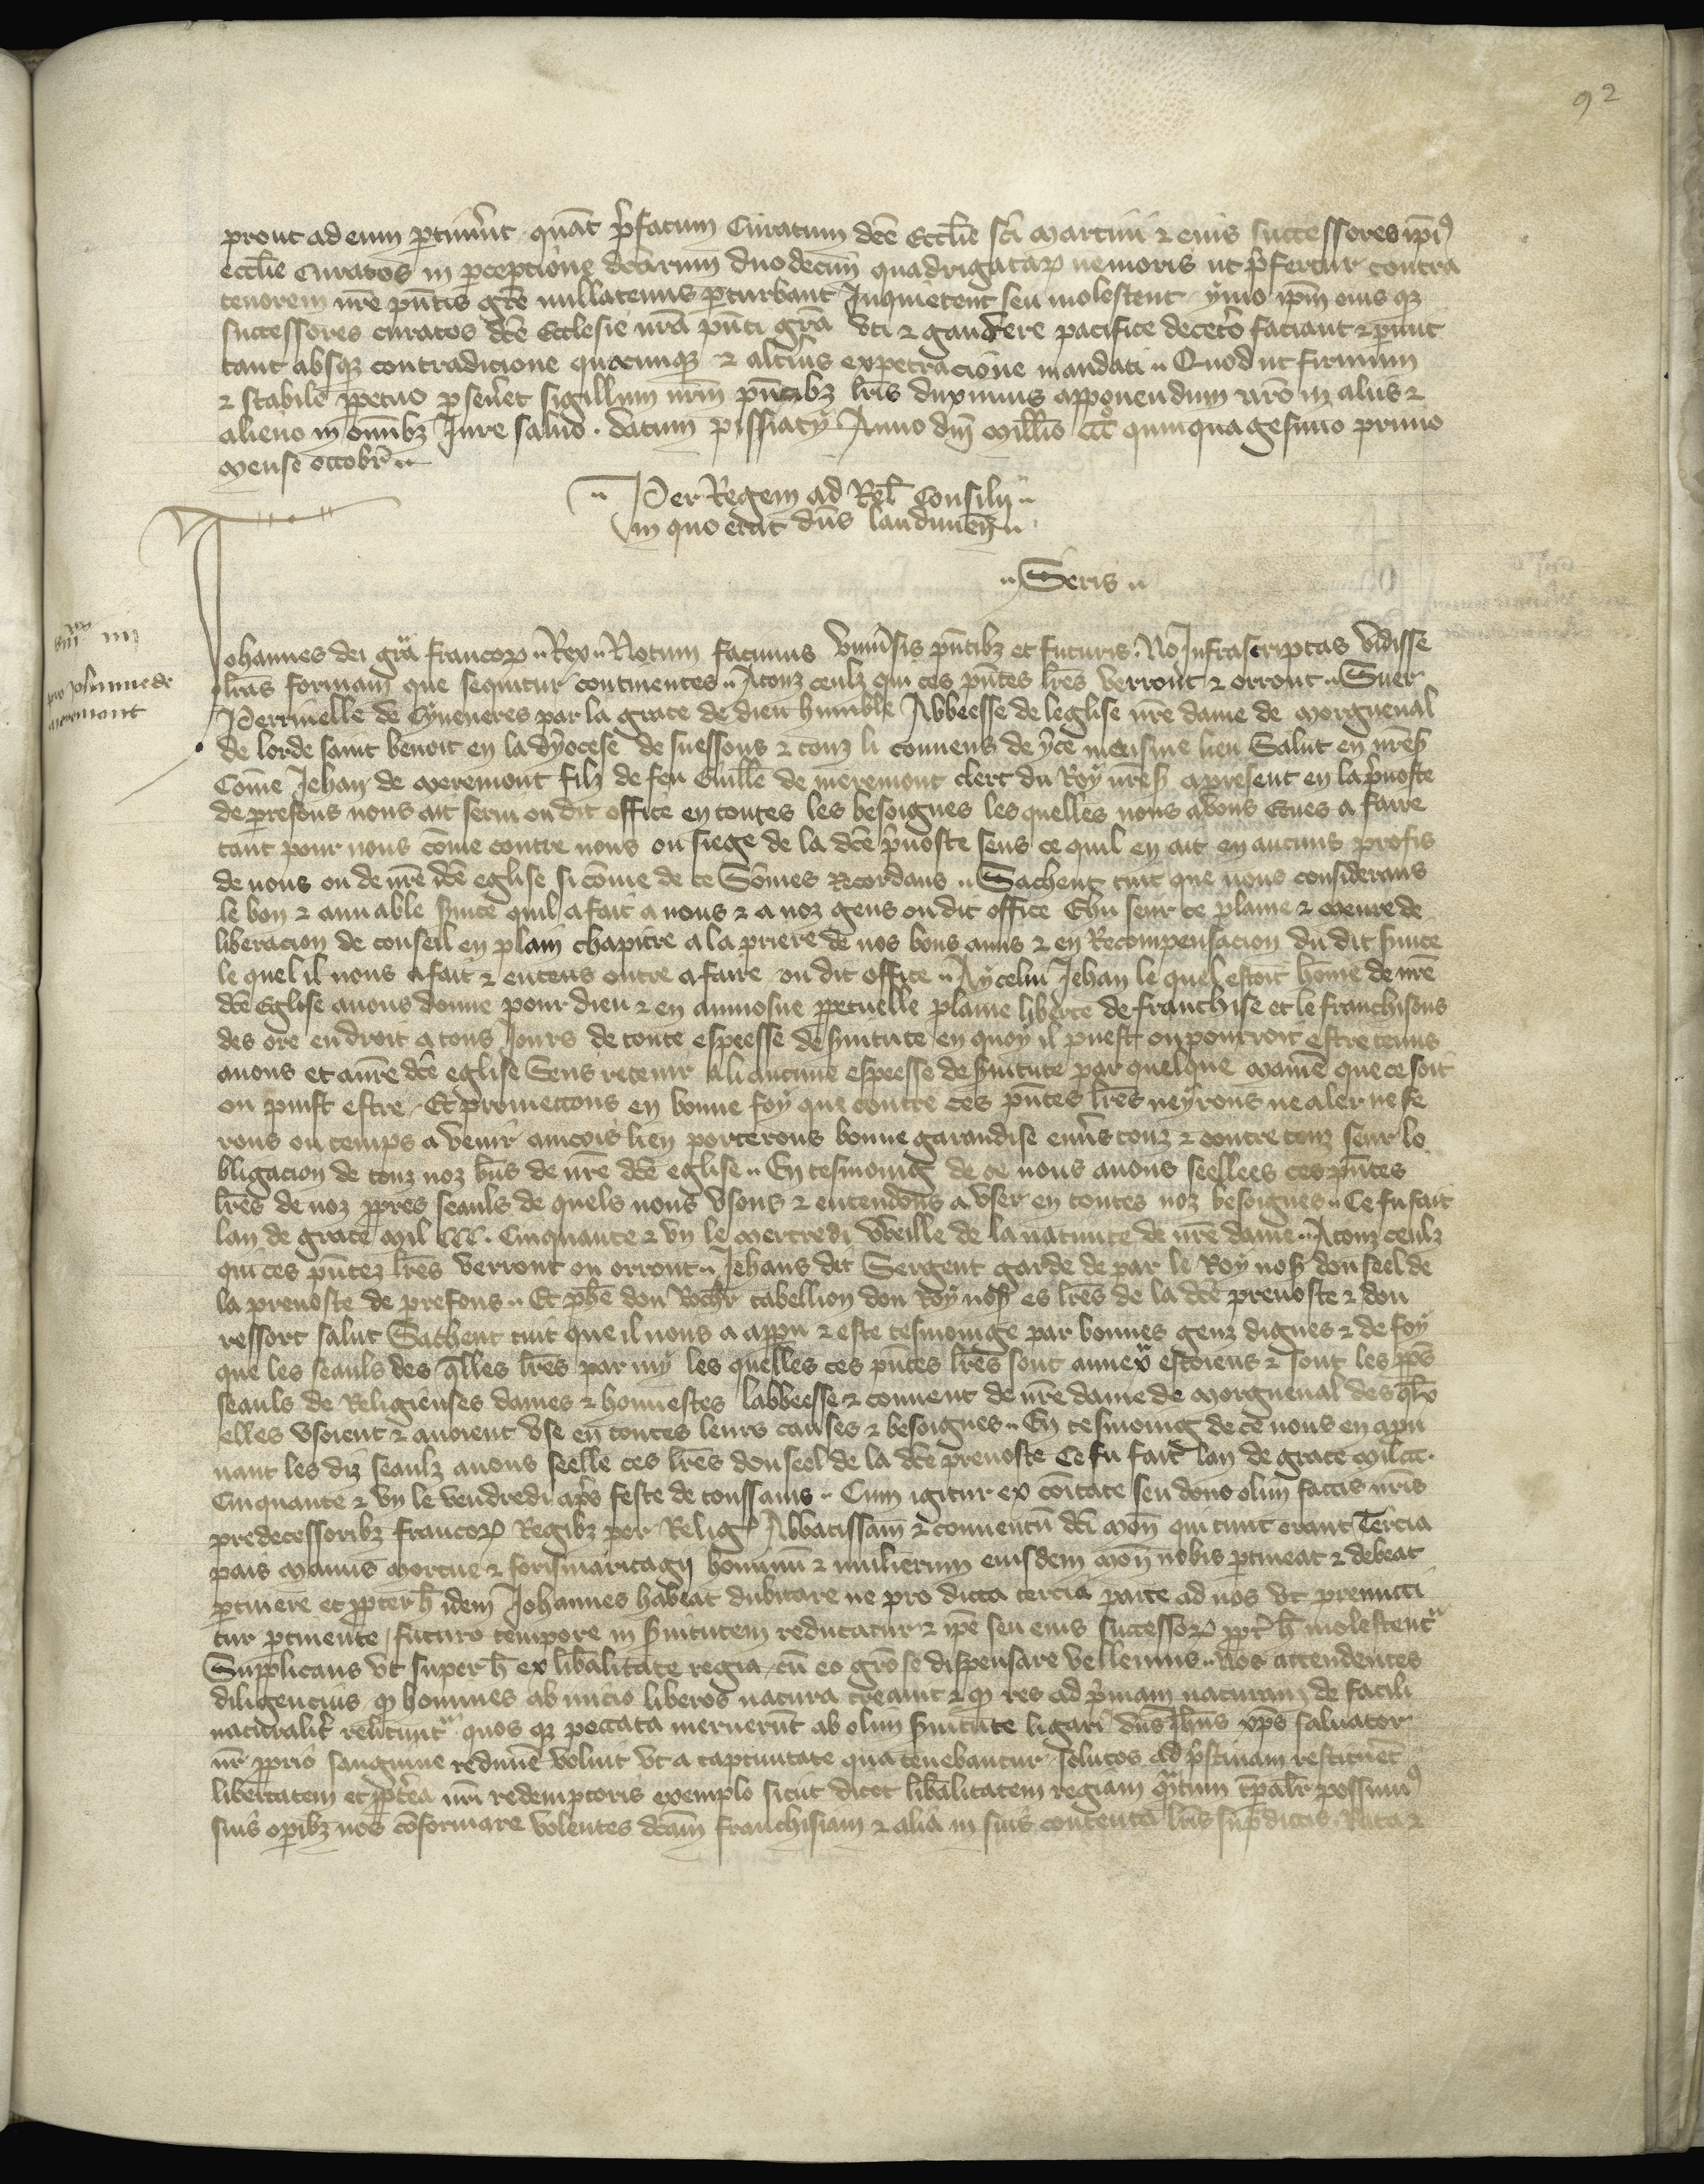 92
prout ad eum ptinuˀit quāt p̄fatum Curatum dcē Ecclie sci Martini ⁊ eius successores ipīꝰ
ecclie Curatos in pceptione dcārum duodecim quadrigatarꝝ nemoris ut p̄fertur contra
tenorem nr̄e pn̄tis grē nullatenus pturbant Inquietent seu molestent ymo ipm̄ eius qꝫ
successores curatos dcē Ecclesie nrā pn̄ti grā vti ⁊ gaudere pacifice decetō faciant ⁊ pmit
tant absqꝫ contradicione quacunqꝫ ⁊ altiˀius expectacione mandati Quod ut firmum
⁊ stabile ppetuo pseuˀet sigillum nrm̄ pn̄tibꝫ lris̄ duximus apponendum nrō in aliis ⁊
alieno in omībꝫ Jure saluo. datum pissiacy Anno dnī Millīo CCC° quinquagesimo primo
Mense octobr̄
Per Regem ad Rel̄ Consilii
in quo erat dn̄s laudunen̄
Seris
pro Johanne de
meremont
Johannes dei grā francorꝝ Rex Notum facimus vniuˀsis pn̄tibꝫ et futuris. Nos Infrascriptas vidisse
lrās formam que sequitur continentes Atouz ceulz qui ces pn̄tes lrēs verront ⁊ orront Suer
Perrinelle de Cyueneres par la grace de dieu humble Abbeesse de leglise nr̄e dame de Morgueual
de lorde saint benoit en la dyocese de suessons ⁊ touz li couuens de yce meisme lieu Salut en nrēs̄
Come Jehan de Meremont filz de feu Guille de meremont clerc du Roy nrēs̄ apresent en la p̄uoste
de prefons nous ait serui ou dit office en toutes les besoignes les quelles nous auons Eues a faire
tant pour nous cōme contre nous ou siege de la dcē p̄uoste sens ce quil en ait eu aucuns profis
de nous ou de nrē dcē eglise si cōme de ce Sōmes Recordans Sachent tuit que nous considerans
le bon ⁊ amiable suīce quil a fait a nous ⁊ a noz gens ou dit office Ehu seur ce plaine ⁊ Meure de
liberacion de conseil en plain chapitre a la priere de nos bons amis ⁊ en Recompensacion du dit suīce
le quel il nous a fait ⁊ entens outre a faire ou dit office Aycelui Jehan le quel estoit hōme de nrē
dcē Eglise auons donne pour dieu ⁊ en aumosne ppetuelle plaine liberte de franchise et le franchisons
des ore en droit a tous Jours de toute espeesse de suitute en quoy il puest ou pourroit estre tenus
anous et anrē dcē eglise Sens retenir ali aucune espeesse de suitute par quelque Maniē que ce soit
ou puist estre. Et promettons en bonne foy que contre ces pn̄tes lrēs neyrons ne aler ne fe
rons ou temps a venir aincois lien porterons bonne garandise enuˀs touz ⁊ contre touz seur lo
bligacion de touz noz bn̄s de nrē dcē eglise En tesmoing de ce nous auons seellees ces pn̄tes
lrēs de noz pp̄res seauls de quels nous vsons ⁊ entendons a vser en toutes noz besoignes Ce fu fait
lan de grace Mil CCC. Cinquante ⁊ vn le Mercredi vbeille de la natiuite de nrē dame Atouz ceulz
qui ces pn̄tez lrēs verront ou orront Jehans dit Sergent garde de par le Roy nos̄ dou seel de
la preuoste de prefons Et phē dou Roch̄r tabellion dou Roy nos̄ es lrēs de la dcē preuoste ⁊ dou
ressort salut Sachent tuit que il nous a appu ⁊ este tesmoinge par bonnes genz dignes ⁊ de foy
que les seauls des qlles lrēs par my les quelles ces pn̄tes lrēs sont annex̄ estoiens ⁊ sont les pp̄s
seauls de Religieuses dames ⁊ honnestes labbeesse ⁊ couuent de nrē dame de Morgueual des qlx̄
elles vsoient ⁊ auoient vse en toutes leurs causes ⁊ besoignes En tesmoing de ce nous en apn
nant les diz seaulz auons seelle ces lrēs dou seel de la dcē preuoste Ce fu fait lan de grace Mil CCC.
Cinquante ⁊ vn le vendredi ap̄s feste de toussains Cum igitur ex cōitate seu dono olim factis nrīs
predecessoribꝫ francorꝝ Regibꝫ per Reliḡ Abbatissam ⁊ conuentū dci Mon̄ qui tunc erant Tercia
pars Manus Mortue ⁊ forismaritagij hominū ⁊ mulierum eiusdem Mon̄ nobis ptineat ⁊ debeat
ptinere et ppterh̄ idem Johannes habeat dubitare ne pro dicta tercia parte ad nos vt premitti
tur ptinente futuro tempore in suitutem reducatur ⁊ ipē seu eius successorꝝ ppt̄ h̄ molestent̄
Supplicans vt super h̄ ex libalitate regia cū eo grōse dispensare vellemus Nos attendentes
diligencius qꝫ homines ab inicio liberos natura creauit ⁊ qꝫ res ad p̄mam naturam de facili
naturalit̄ reuˀtunt̄ quos qꝫ peccata meruerūt ab olim suitute ligari dn̄s Jhūs xp̄s saluator
nr̄ pprio sanguine redimē voluit vt a captiuitate qua tenebantur solutos ad p̄stinam restituēt
libertatem et pptēa nrī redemptoris exemplo sicut dicet libalitatem regiam q̄tum tpāl̄r possumꝰ
suis opibꝫ nos cōformare volentes dcām franchisiam ⁊ alia in suis contenta lrīs sup̄dictis. Rata ⁊